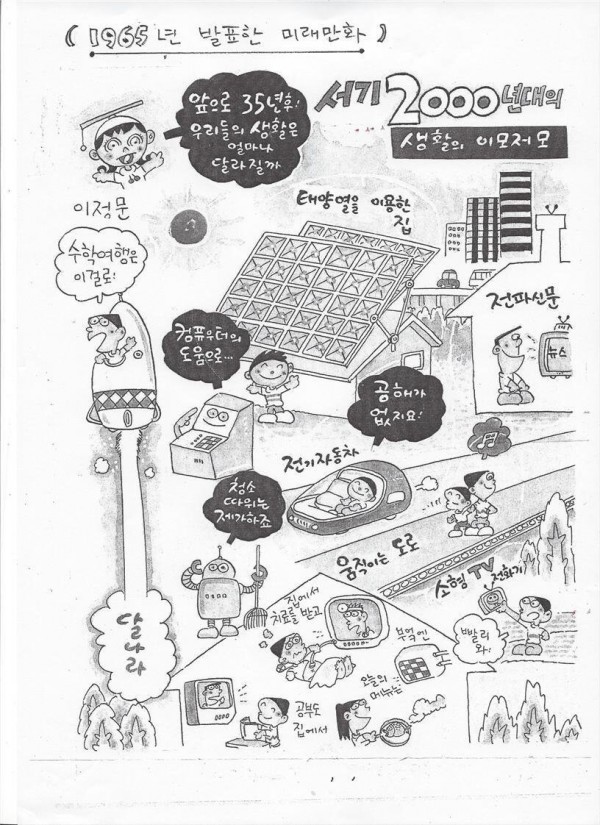 ( 1965년 발표한 미래만화 )
앞으로 35년후!
우리들의 생활은
얼마나
달라질까
서기 2000년대의
생활의 이모저모
이정문
태양열을 이용한
집
수학여행은
이걸로!
전파신문
뉴스
컴퓨우터의
도움으로...
공해가
없지요!
전기자동차
청소
따위는
제가하죠
움직이는 도로
소형 TV 전화기
빨리
와!
집에서
치료를 받고
부엌엔
오늘의
메뉴는
공부도
집에서
달나라